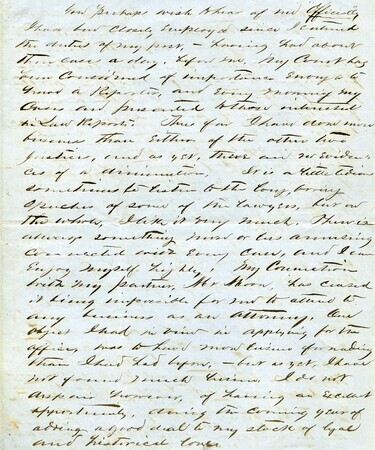 You perhaps wish to hear of me Officially
I have been closely employed since I entered
the duties of my post, - having had about
three cases a day, before me. My Court has
been considered of importance enough to
have a Reporter, and every morning my
cases are presented to those interested
in Law Reports. Thus far I have done more
business than either of the other two
Justices, and as yet, there are no eviden-
ces of a diminution. It is a little tedious
sometimes to listen to the long, boring
speeches of some of the lawyers, but on
the whole, I like it very much. There is
always something more or less amusing
connected with every case, and I can
enjoy myself highly. My connection
with my partner, Mr has ceased
it being impossible for me to attend to
any business as an attorney. One
object I had in view in applying for the
office, was to have more leisure for reading
than I had had before, - but as yet, I have
not found much leisure. I do not
despair however, of having an excellent
opportunity, during the coming year of
adding a good deal to my stock of legal
and historical lore.